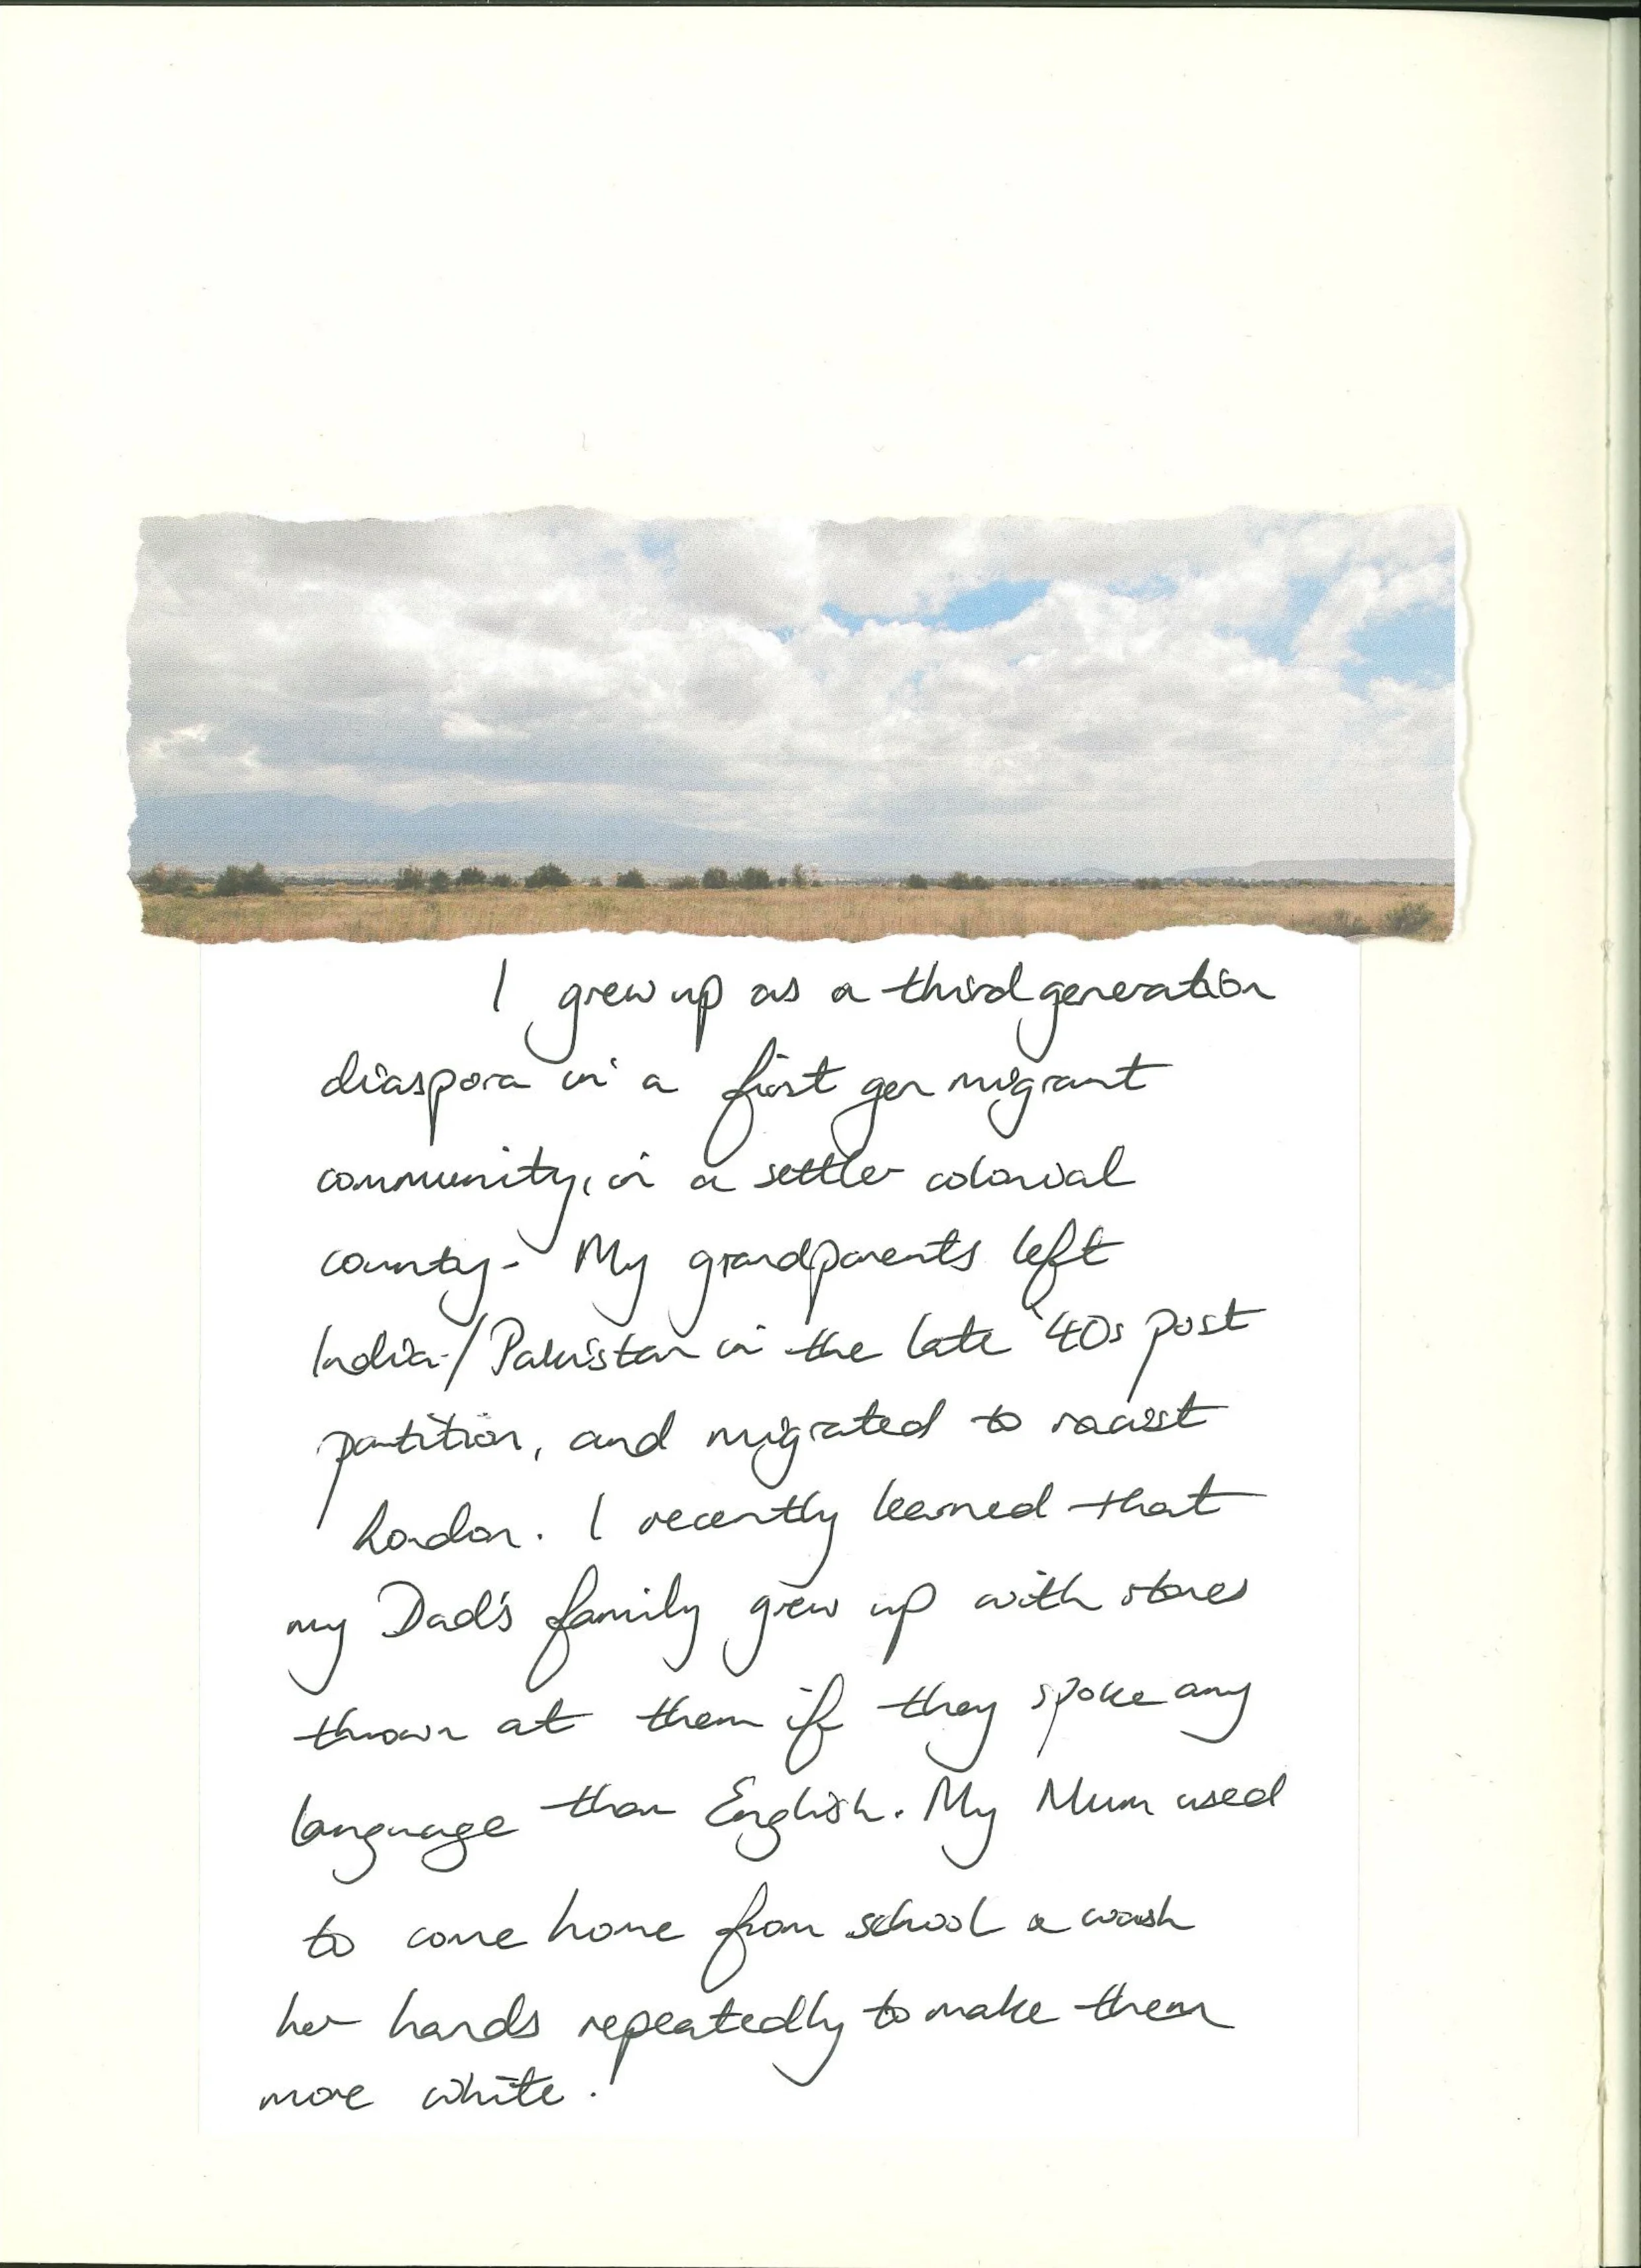 I grew up as a third generation
diaspora in a first gen migrant
community, in a settler colonial
county. My grandparents left
India/Pakistan in the late '40s post
partition, and migrated to racist
London. I recently learned that
my Dad's family grew up with stones
thrown at them if they spoke any
language than English. My Mum used
to come home from school a wash
her hands repeatedly to make them
more white.